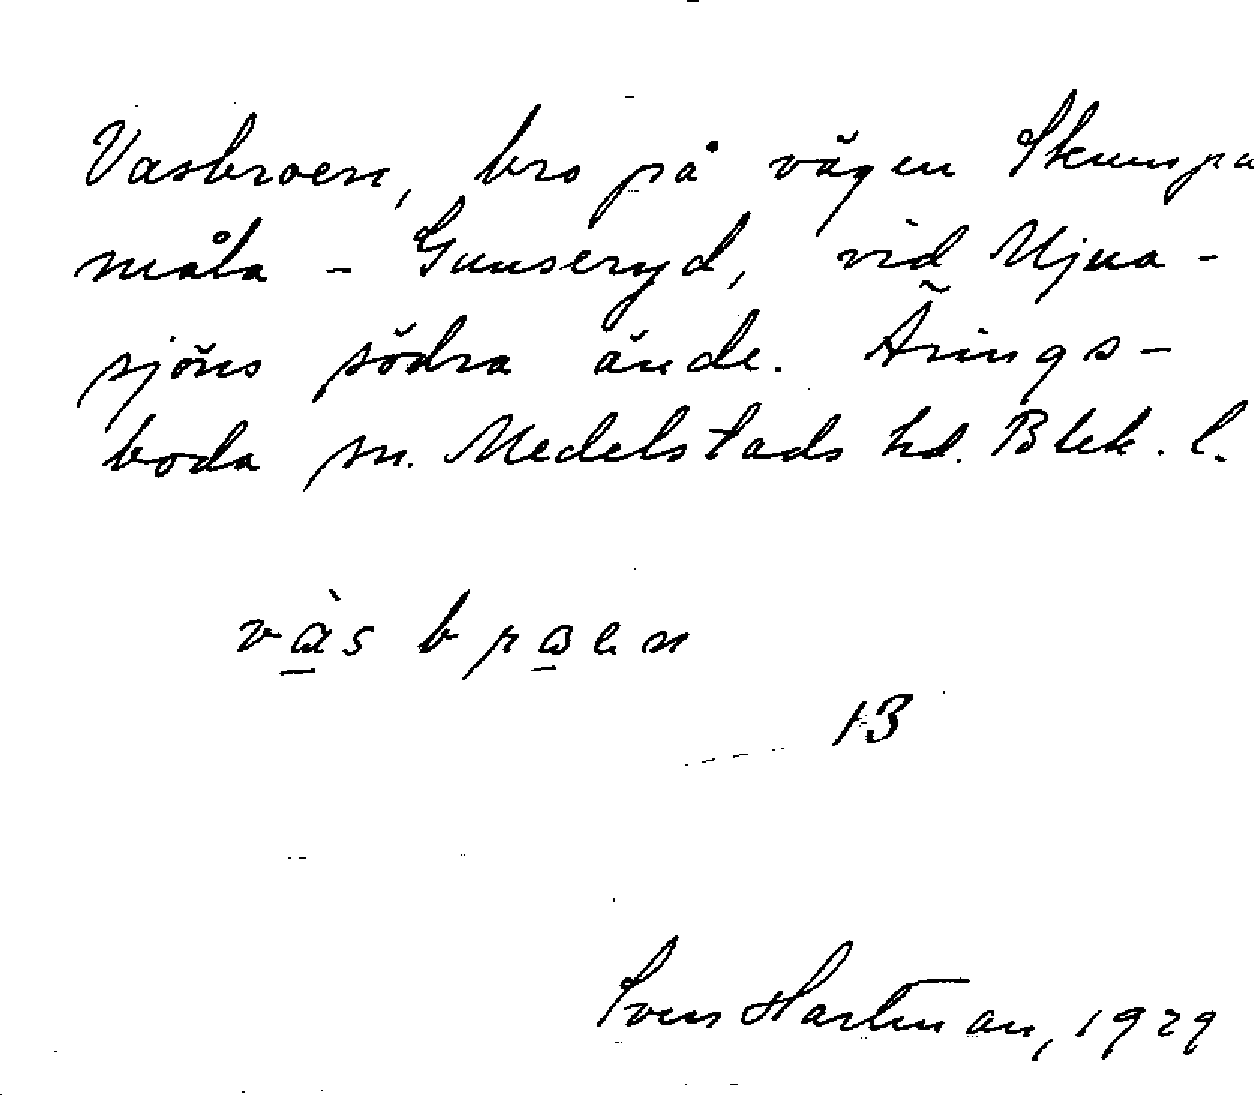 Vasbroen, bro på vägen Skumpa
måla - Gunseryd, vid Mjua-
sjöns södra ände. Ärings-
boda sn. Medelstads hd. Blek. l.
vàs broen
13
Sven Hartman, 1929